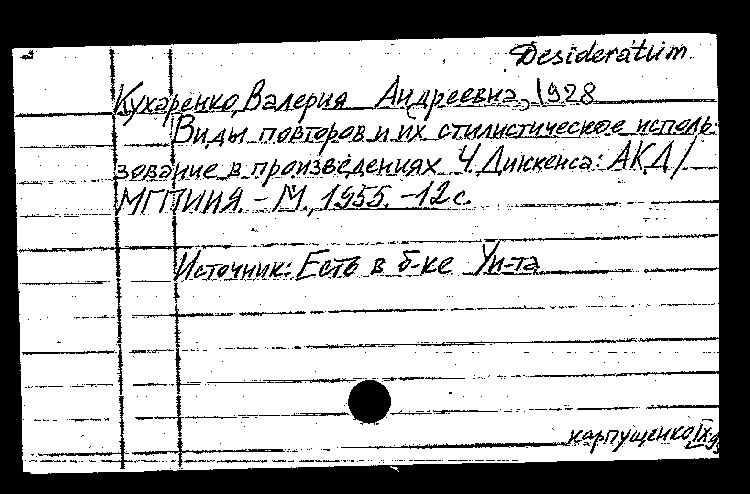 Desideratum
Кухаренко, Валерия Андреевна, 1928
Виды повторов и их стилистическое исполь-
зование в произведениях Ч. Диккенса: АКД /
МГПИИЯ. - М., 1955. - 12 с.
Источник: Есть в б-ке Ун-та
карпущенко, IX.